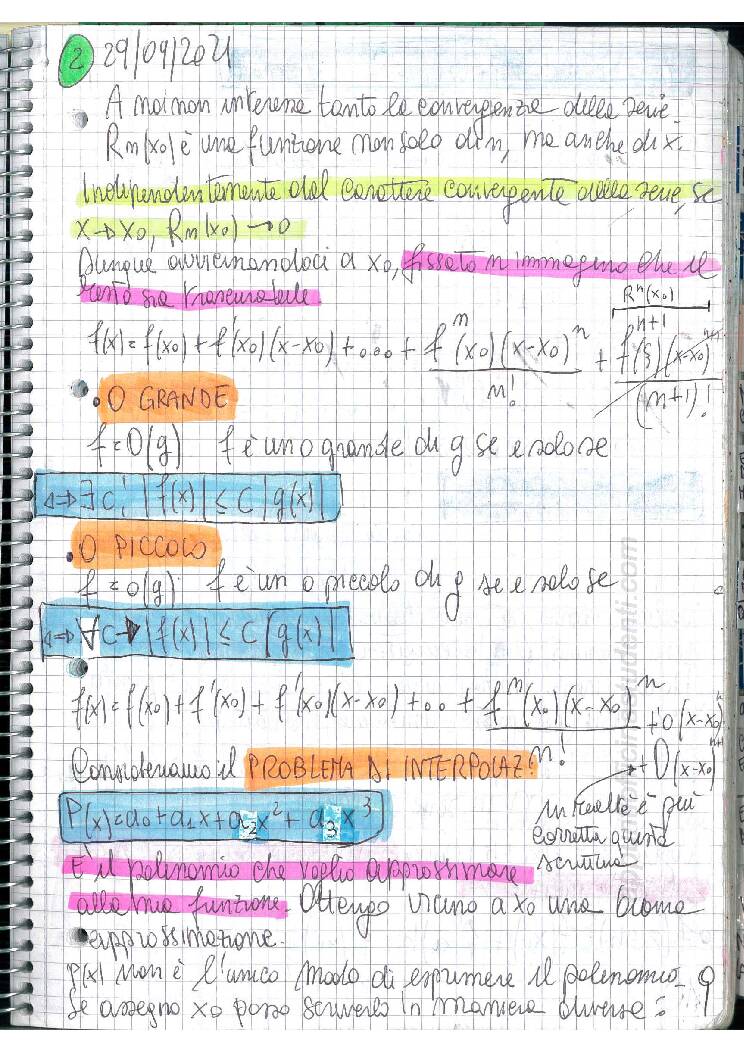 2 29/09/2021
A noi non interessa tanto la convergenza della serie.
Rn(x0) è una funzione non solo di n, ma anche di x.
Indipendentemente dal carattere convergente della serie, se
x→x0, Rn(x0)→0
Dunque avvicinandoci a x0, fissato n immagino che il
resto sia trascurabile
Rⁿ(x0)
f(x) = f(x0) + f'(x0)(x-x0) + ... + fⁿ(x0)(x-x0)ⁿ/n! + fⁿ⁺¹(ξ)(x-x0)ⁿ⁺¹/(n+1)!
• O GRANDE
f = O(g) f è un o grande di g se e solo se
⇔ ∃ C: |f(x)| ≤ C |g(x)|
• O PICCOLO
f = o(g) f è un o piccolo di g se e solo se
⇔ ∀ C → |f(x)| ≤ C |g(x)|
f(x) = f(x0) + f'(x0) + f'(x0)(x-x0) + ... + fⁿ(x0)(x-x0)ⁿ/n! + o(x-x0)ⁿ
+ O(x-x0)ⁿ⁺¹
Consideriamo il PROBLEMA DI INTERPOLAZ:
P(x) = a0 + a1x + a2x² + a3x³
in realtà è più
corretta questa
scrittura
È il polinomio che voglio approssimare
alla mia funzione. Ottengo vicino a x0 una buona
approssimazione.
P(x) non è l'unico modo di esprimere il polinomio.
Se assegno x0 posso scriverlo in maniera diversa:
9